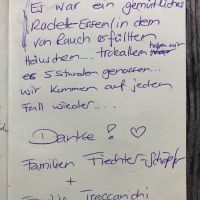 Es war ein gemütliches
Raclette-Essen (in dem
von Rauch erfüllten
Häuschen.... trotzdem haben wir
es 5 Stunden genossen...
wir kommen auf jeden
Fall wieder....
Danke! ♡
Familien Fiechter-Schöpfer
+